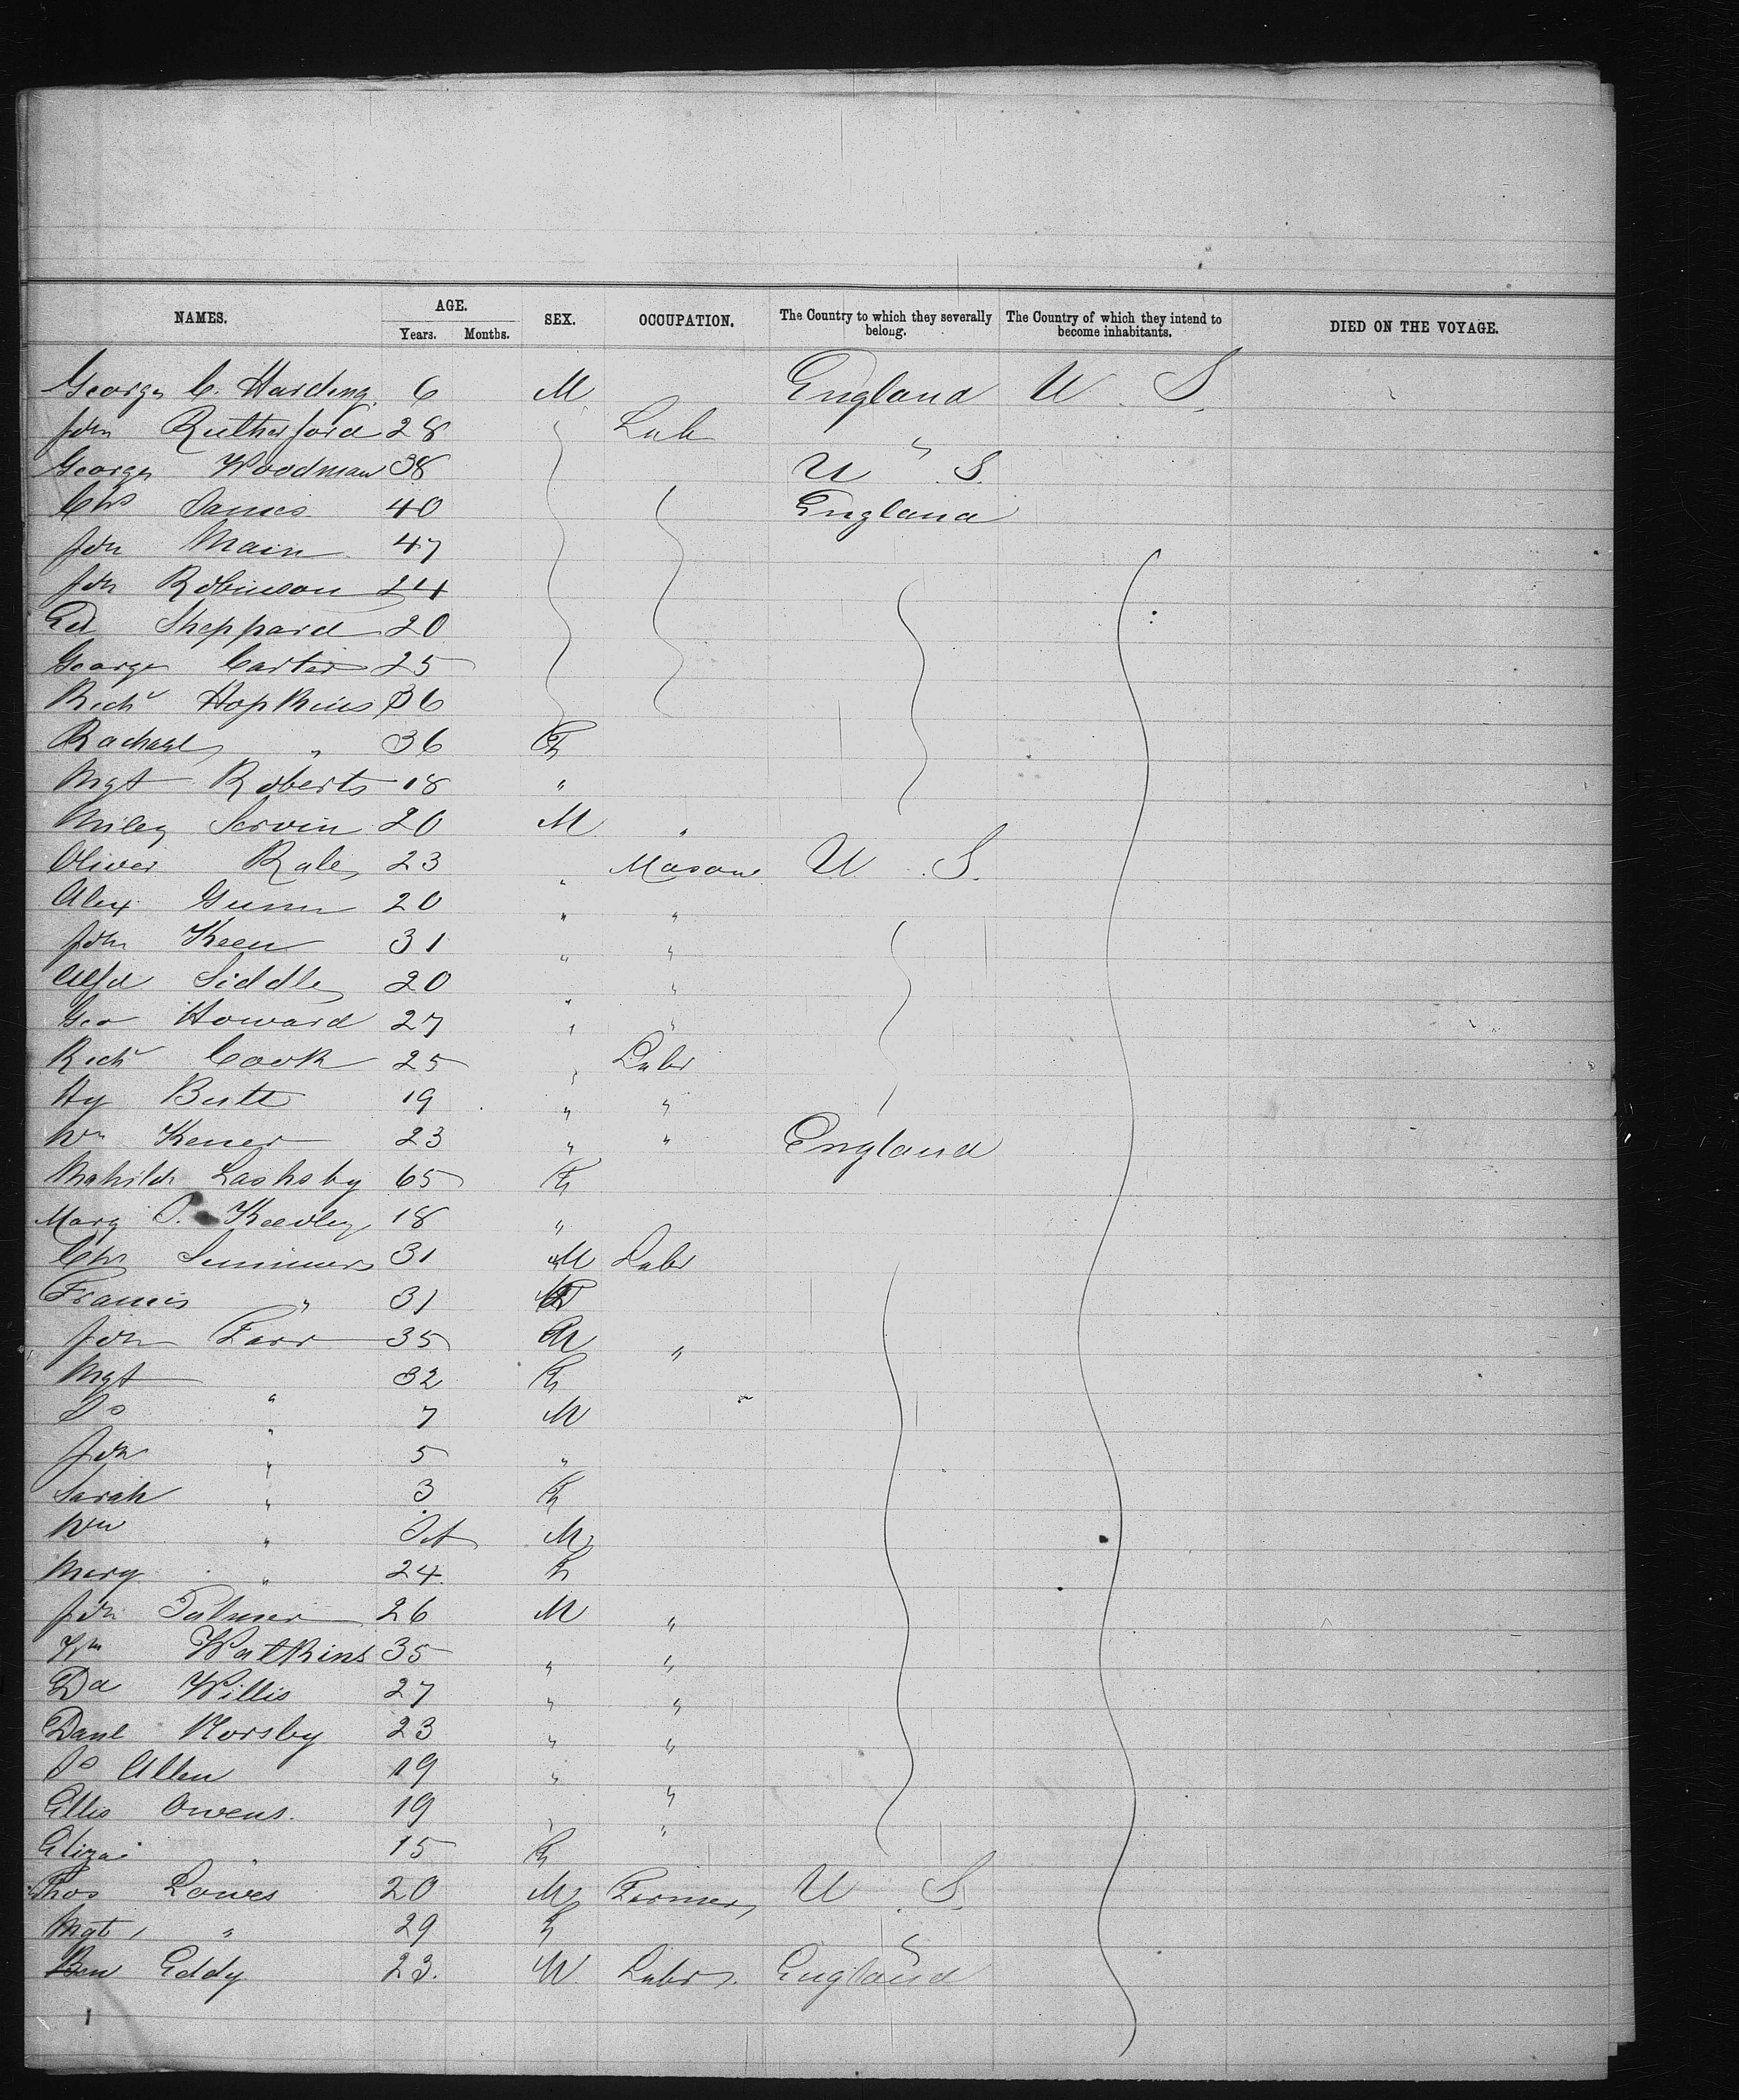 NAMES. AGE. SEX. OCCUPATION. The Country to which they severally belong. The Country of which they intend to become inhabitants. DIED ON THE VOYAGE.
Years. Months.
George C. Harding 6 M England U. S.
Jdn Rutherford 28 Lab "
George Woodman 38 U. S.
Chs James 40 England
Jdn Main 47
Jdn Robinson 24
Ed Sheppard 20
George Carter 25
Richd Hopkins 36
Rachael " 36 F
Mgt Roberts 18 "
Miley 20 M "
Oliver Rale 23 " Mason U. S.
Alex Gunn 20 " "
Jdn Keen 31 " "
Alfd Siddle 20 " "
Geo Howard 27 " "
Richd Cook 25 " Labr
Hy Butt 19 " "
Wm Kener 23 " " England
Mahilda Lashsby 65 F
Mary 18 "
Chs Summers 31 M Labr
Francis " 31 F
Jdn Farr 35 M "
Mgt " 32 F
Do " 7 M
Jdn " 5 "
Sarah " 3 F
Wm " M
Mary " 24 F
Jdn Palmer 26 M "
Wm Watkins 35 " "
Da Willis 27 " "
Danl Horsby 23 " "
Jo Allen 19 " "
Ellis Owens. 19 " "
Eliza " 15 F
Thos Lowes 20 M Farmer U. S.
Mgt " 29 F "
Ben Eddy 23. M Labr. England